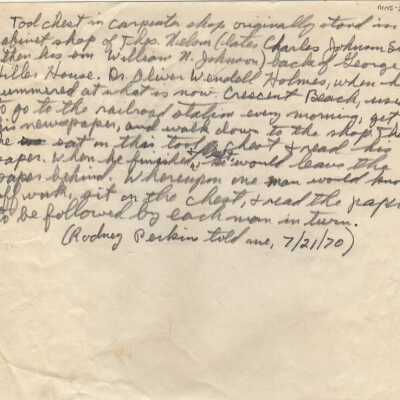 MNS-2
Tool chest in carpenter shop originally stood in
cabinet shop of Thos. Nelson (later Charles Johnson Sr
then his son William N. Johnson) back of George
Hiller House. Dr. Oliver Wendell Holmes, when he
summered at what is now Crescent Beach, used
to go to the railroad station every morning, get
his newspaper, and walk down to the shop. There
he sat on this tool chest & read his
paper. When he finished, he would leave the
paper behind. Whereupon one man would knock
off work, sit on the chest, & read the paper
to be followed by each man in turn.
(Rodney Perkin told me, 7/21/70)